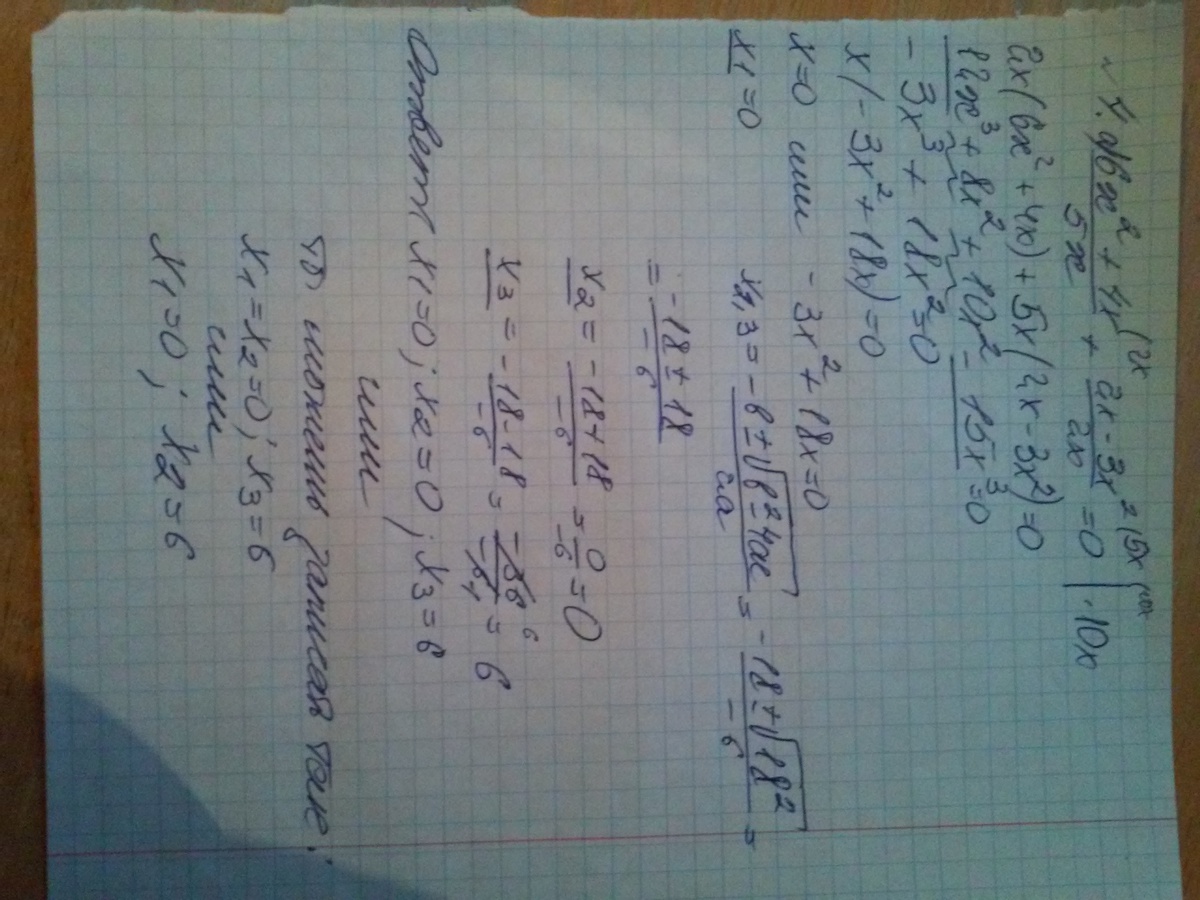 √ 1. а) 6x² + 4x (2x / 5x + 2x - 3x² (5x / 2x = 0 | · 10x
2x(6x² + 4x) + 5x(2x - 3x²) = 0
12x³ + 8x² + 10x² - 15x³ = 0
- 3x³ + 18x² = 0
x(- 3x² + 18x) = 0
x = 0 или - 3x² + 18x = 0
x₁ = 0
x₂,₃ = -в ± √в² - 4ас / 2а = -18 ± √18² / -6 =
= -18 ± 18 / -6
x₂ = -18 + 18 / -6 = 0 / -6 = 0
x₃ = -18 - 18 / -6 = -36 6 / -6 1 = 6
Ответ x₁ = 0; x₂ = 0; x₃ = 6
или
то можешь записать так:
x₁ = x₂ = 0; x₃ = 6
или
x₁ = 0; x₂ = 6